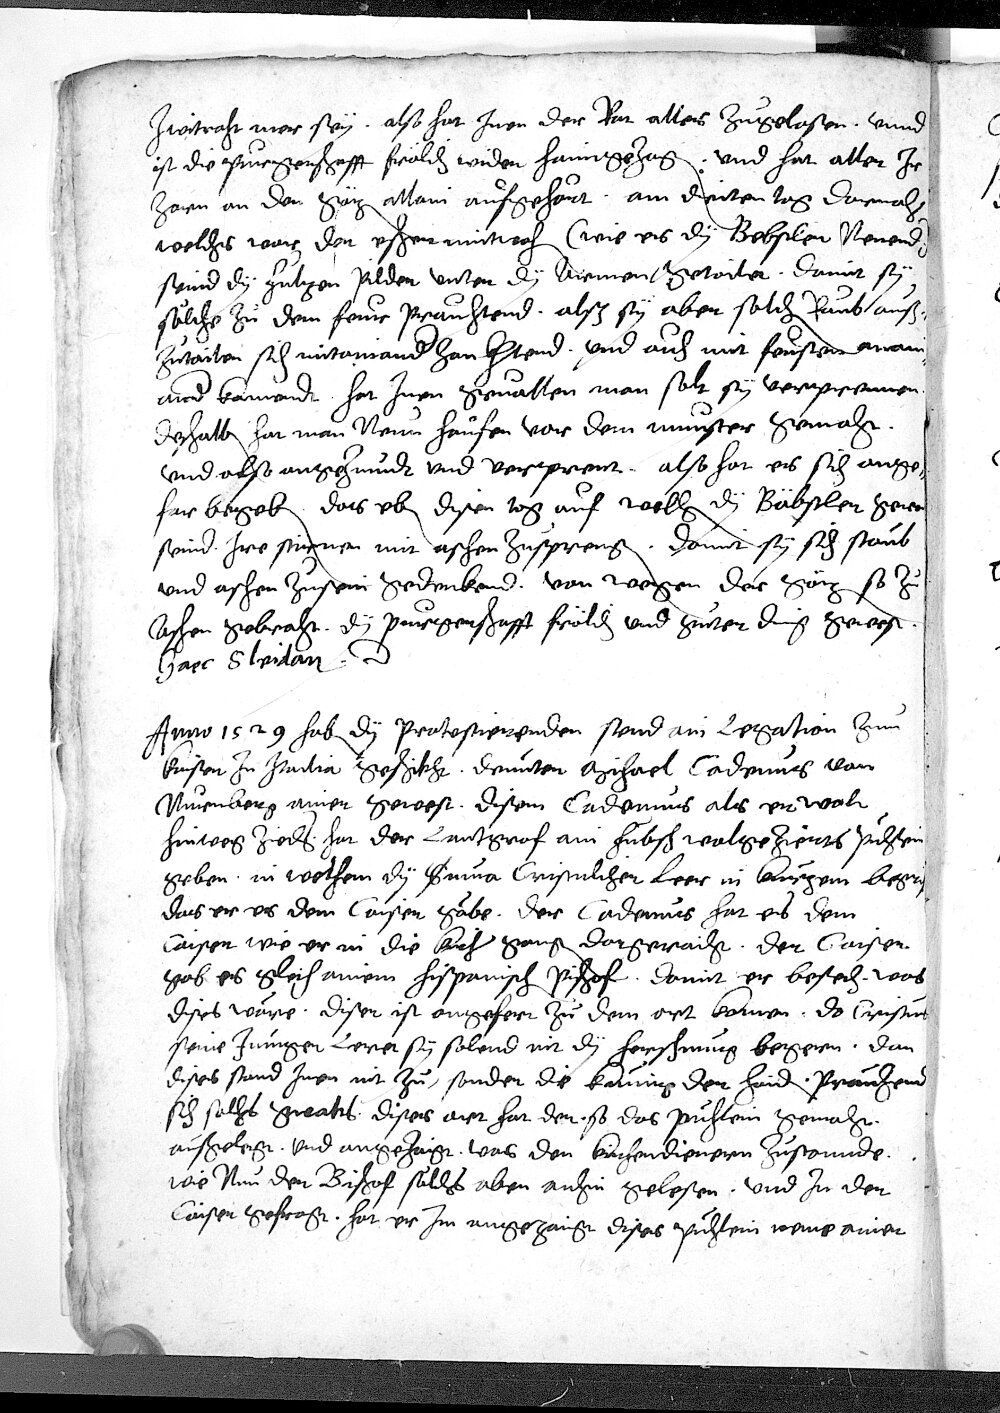 Zwitracht mer sey. also hat Inen der Rat alles zugelasen. vnnd
ist die purgerschafft frölich wider haimgezog. vnd hat aller Ir
Zorn an den göz allain aufgehört. am driten tag darnach
welchs war der eschermitwoch (wie es dy Bebstler Nenend)
seind dy hulzen pilder vnter dy Armen getailt. damit sy
solche zu dem feur prauchtend. alss sy aber solch Raub auss-
zutailen sich mitainand zanktend. vnd auch mit feusten anain-
and kamendt. hat Inen geuallen man solt sy verprennen
deshalb hat man Neun haufen vor dem munster gemacht.
vnd also angezundt vnd verprent. also hat es sich ange-
far begeb. das eb disen tag auf welch dy Bäbstler gewon
seind. Ire stirnen mit aschen zuspreng. damit sy sich staub
vnd aschen zusein gedenkend. von wegen der göz so zu
Aschen gebracht. dy purgerschafft frölich vnd guter ding gewest.
Haec Sleidan.
Anno 1529 hab dy Protestierenden stend ain Legation zum
kaiser In Italia geschikht. drunter Michael Cadenus von
Nurenberg ainer gewest. disem Cadenus als er wolt
hinweg ziech. hat der Lantgraf ain hubsch wolgezierts puchlein
geben. in welchem dy Suma Cristlicher Leer in kurzem begrif
das er es dem Caiser gäbe. der Cadenus hat es dem
Caiser wie er in die kirch gang dargeraicht. der Caiser
gab es gleich ainem hispanisch Pischof. damit er besech. was
dises wäre. diser ist angefert zu dem ort komen. da Cristus
seine Junger Leret sy solend nit dy herschung begeren. dan
dises stand Inen nit zu, sonder die kunig der haid. Prauchend
sich solchs gwalts. dises ort hat der. so das puchlein gemacht.
ausgelegt. vnd angezaigt. was den kirchendienern zustuende.
wie Nun der Bischof solchs oben anhin gelesen. vnd In der
Caiser gefragt. hat er Im angezaigt dises puchlein neme ainer